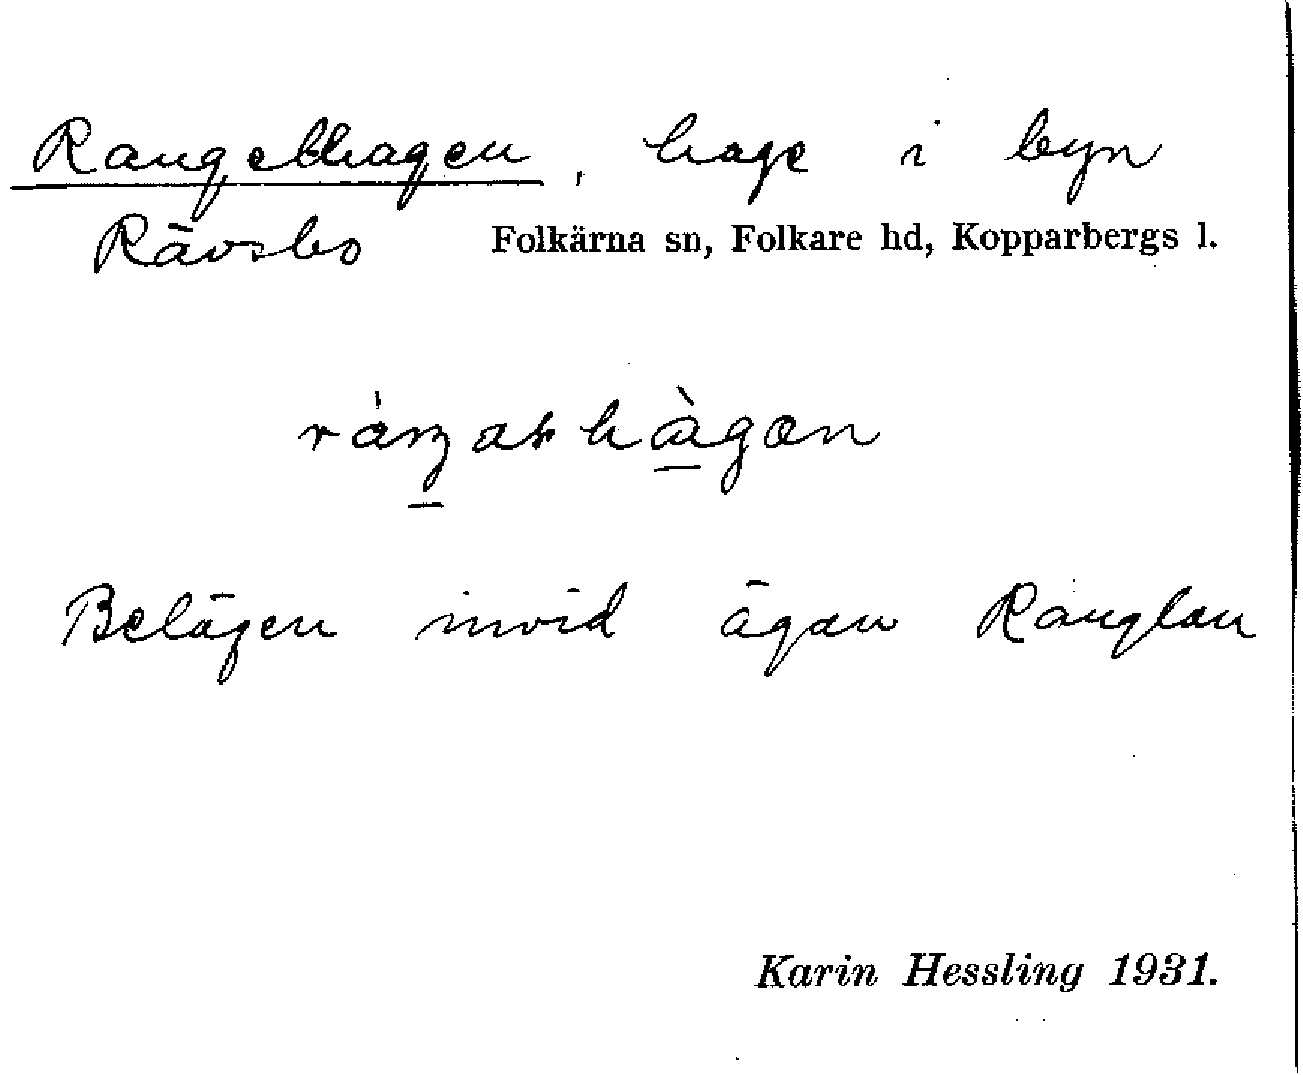 Rangelhagen, hage i byn
Rävsbo Folkärna sn, Folkare hd, Kopparbergs l.
Belägen invid ägan Ranglan
Karin Hessling 1931.